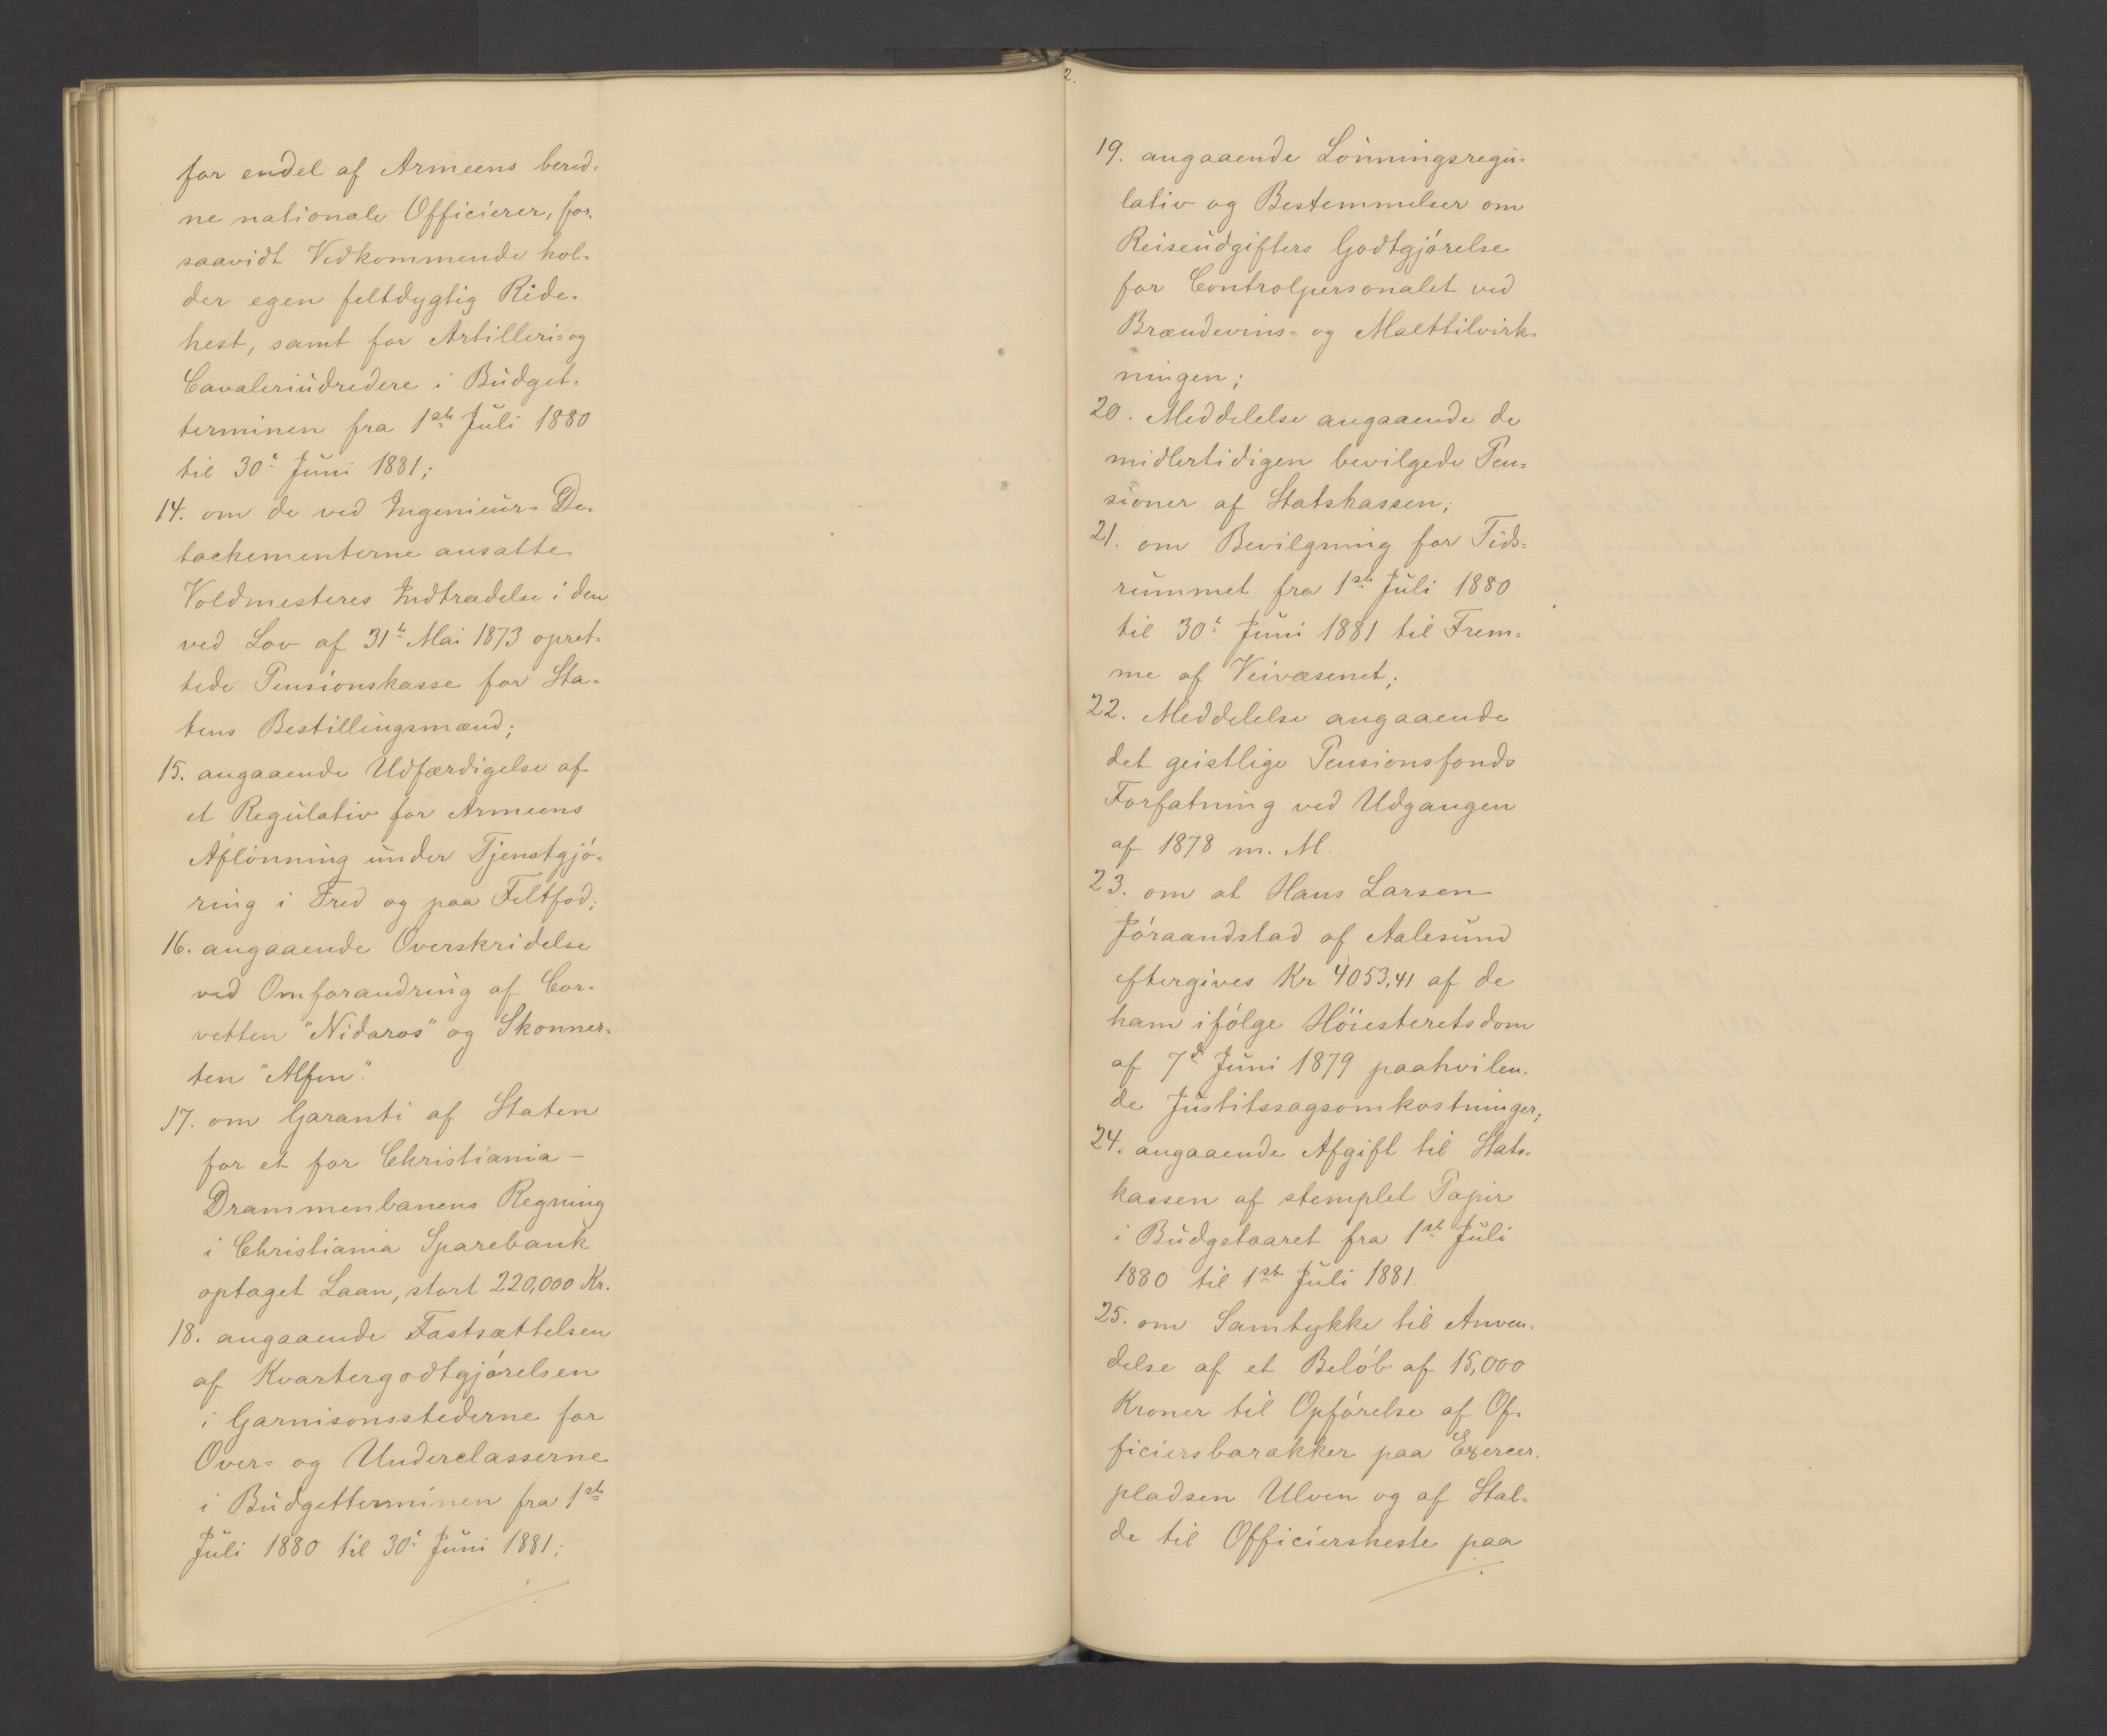 for endel af Armeens bered-
ne nationale Officierer, for-
saavidt Vedkommende hol-
der egen feltdygtig Ride-
hest, samt for Artilleri= og
Cavaleriudredere i Budget-
terminen fra 1ste Juli 1880
til 30te Juni 1881;
14. om de ved Ingenieur= De-
tachementerne ansatte
Voldmesteres Indtrædelse i den
ved Lov af 31te Mai 1873 opret-
tede Pensionskasse for Sta-
tens Bestillingsmænd;
15. angaaende Udfærdigelse af
et Regulativ for Armeens
Aflönning under Tjenstgjö-
ring i Fred og paa Feltfod;
16. angaaende Overskridelse
ved Omforandring af Cor-
vetten "Nidaros" og Skonner-
ten "Alfen".
17. om Garanti af Staten
for et for Christiania –
Drammenbanens Regning
i Christiania Sparebank
optaget Laan, stort 220,000 Kr.
18. angaaende Fastsættelsen
af Kvartergodtgjörelsen
i Garnisonsstederne for
Over= og Underclasserne
i Budgetterminen fra 1ste
Juli 1880 til 30te Juni 1881;
2.
19. angaaende Lönningsregu-
lativ og Bestemmelser om
Reiseudgifters Godtgjörelse
for Controlpersonalet ved
Brændevins= og Malttilvirk-
ningen;
20. Meddelelse angaaende de
midlertidigen bevilgede Pen-
sioner af Statskassen;
21. om Bevilgning for Tids-
rummet fra 1ste Juli 1880
til 30te Juni 1881 til Frem-
me af Veivæsenet;
22. Meddelelse angaaende
det geistlige Pensionsfonds
Forfatning ved Udgangen
af 1878 m. M.
23. om at Hans Larsen
Jöraandstad af Aalesund
eftergives Kr 4053,41 af de
ham ifölge Höiesteretsdom
af 7de Juni 1879 paahvilen-
de Justitssagsomkostninger;
24. angaaende Afgift til Stats-
kassen af stemplet Papir
i Budgetaaret fra 1ste Juli
1880 til 1ste Juli 1881.
25. om Samtykke til Anven-
delse af et Belöb af 15,000
Kroner til Opförelse af Of-
ficiersbarakker paa Exercer-
pladsen Ulven og af Stal-
de til Officiersheste paa